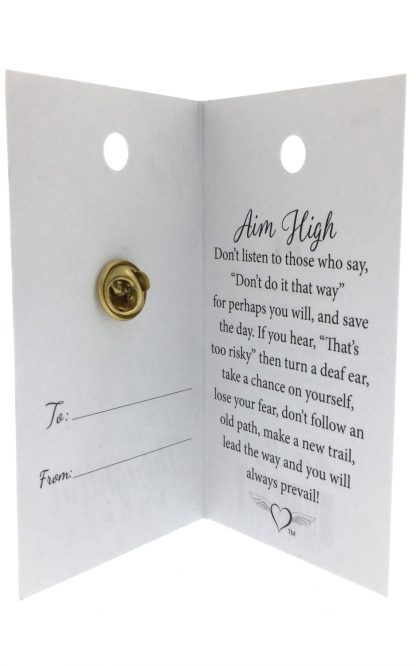 To:
From:
Aim High
Don't listen to those who say,
“Don't do it that way”
for perhaps you will, and save
the day. If you hear, “That's
too risky” then turn a deaf ear,
take a chance on yourself,
lose your fear, don't follow an
old path, make a new trail,
lead the way and you will
always prevail!
TM